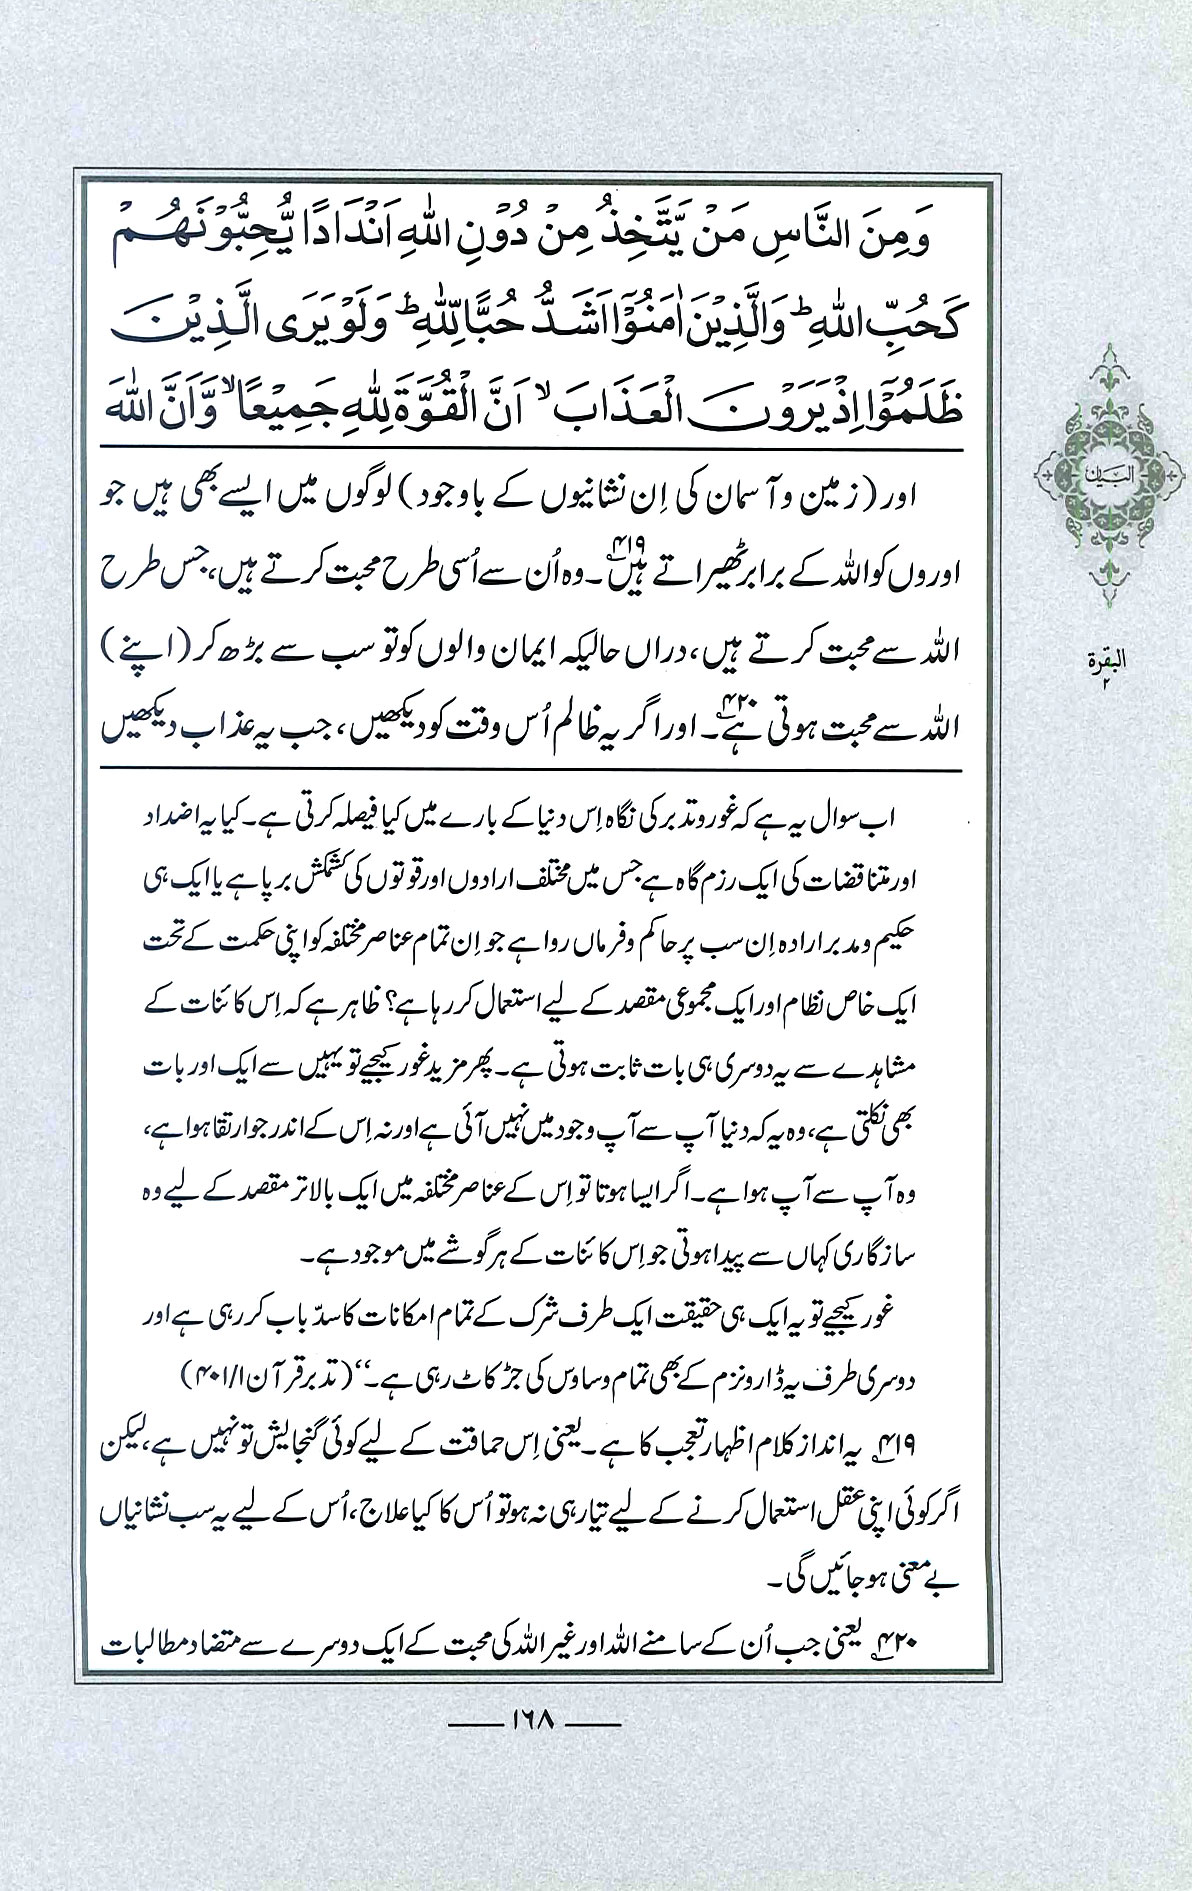 وَمِنَ النَّاسِ مَنْ يَّتَّخِذُ مِنْ دُوْنِ اللّٰهِ اَنْدَادًا يُّحِبُّوْنَهُمْ
كَحُبِّ اللّٰهِ ؕ وَالَّذِيْنَ اٰمَنُوْٓا اَشَدُّ حُبًّا لِّلّٰهِ ؕ وَلَوْ يَرَى الَّذِيْنَ
ظَلَمُوْٓا اِذْ يَرَوْنَ الْعَذَابَ ۙ اَنَّ الْقُوَّةَ لِلّٰهِ جَمِيْعًا ۙ وَّاَنَّ اللّٰهَ
اور (زمین و آسمان کی اِن نشانیوں کے باوجود) لوگوں میں ایسے بھی ہیں جو
اوروں کو اللہ کے برابر ٹھیراتے ہیں۔۴۱۹ وہ اُن سے اُسی طرح محبت کرتے ہیں، جس طرح
اللہ سے محبت کرتے ہیں، دراں حالیکہ ایمان والوں کو تو سب سے بڑھ کر (اپنے)
اللہ سے محبت ہوتی ہے۔۴۲۰ اور اگر یہ ظالم اُس وقت کو دیکھیں، جب یہ عذاب دیکھیں
اب سوال یہ ہے کہ غور و تدبر کی نگاہ اِس دنیا کے بارے میں کیا فیصلہ کرتی ہے۔ کیا یہ اضداد
اور متناقضات کی ایک رزم گاہ ہے جس میں مختلف ارادوں اور قوتوں کی کشمکش برپا ہے یا ایک ہی
حکیم و مدبر ارادہ اِن سب پر حاکم و فرماں روا ہے جو اِن تمام عناصر مختلفہ کو اپنی حکمت کے تحت
ایک خاص نظام اور ایک مجموعی مقصد کے لیے استعمال کر رہا ہے؟ ظاہر ہے کہ اِس کائنات کے
مشاہدے سے یہ دوسری ہی بات ثابت ہوتی ہے۔ پھر مزید غور کیجیے تو یہیں سے ایک اور بات
بھی نکلتی ہے، وہ یہ کہ دنیا آپ سے آپ وجود میں نہیں آئی ہے اور نہ اِس کے اندر جو ارتقا ہوا ہے،
وہ آپ سے آپ ہوا ہے۔ اگر ایسا ہوتا تو اِس کے عناصر مختلفہ میں ایک بالاتر مقصد کے لیے وہ
سازگاری کہاں سے پیدا ہوتی جو اِس کائنات کے ہر گوشے میں موجود ہے۔
غور کیجیے تو یہ ایک ہی حقیقت ایک طرف شرک کے تمام امکانات کا سدّ باب کر رہی ہے اور
دوسری طرف یہ ڈارونزم کے بھی تمام وساوس کی جڑ کاٹ رہی ہے۔‘‘ (تدبر قرآن ۱/ ۴۰۱)
۴۱۹ یہ انداز کلام اظہار تعجب کا ہے۔ یعنی اِس حماقت کے لیے کوئی گنجایش تو نہیں ہے، لیکن
اگر کوئی اپنی عقل استعمال کرنے کے لیے تیار ہی نہ ہو تو اُس کا کیا علاج، اُس کے لیے یہ سب نشانیاں
بے معنی ہو جائیں گی۔
۴۲۰ یعنی جب اُن کے سامنے اللہ اور غیر اللہ کی محبت کے ایک دوسرے سے متضاد مطالبات
۱۶۸
البیان
البقرۃ
۲